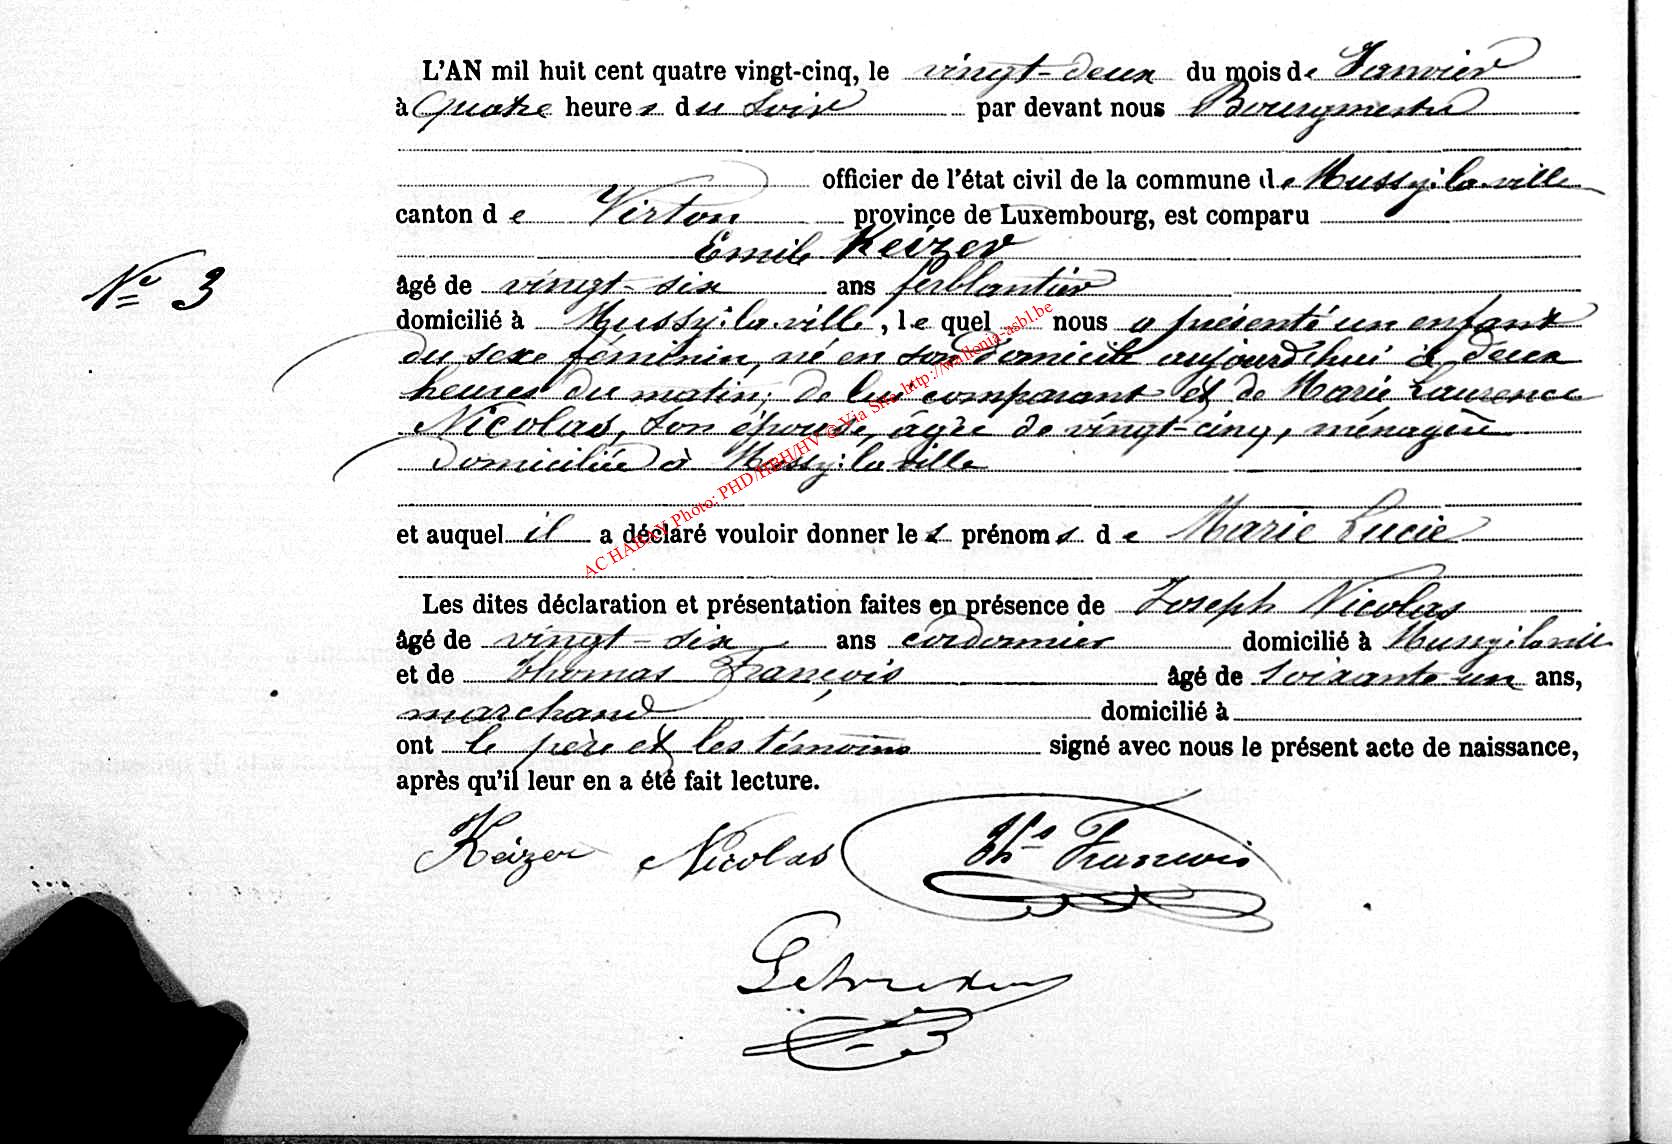 L'AN mil huit cent quatre vingt-cinq, le vingt-deux du mois de Janvier
à quatre heures du soir par devant nous Bourgmestre
officier de l'état civil de la commune de Mussy-la-ville
canton de Virton province de Luxembourg, est comparu
Emile Keizer
N° 3
âgé de vingt-six ans ferblantier
domicilié à Mussy-la-ville, lequel nous a présenté un enfant
du sexe féminin, né en son domicile aujourd'hui à deux
heures du matin, de lui comparant et de Marie Laurence
Nicolas, son épouse, âgée de vingt-cinq, ménagère
domiciliée à Mussy-la-ville
et auquel il a déclaré vouloir donner les prénoms de Marie Lucie
Les dites déclaration et présentation faites en présence de Joseph Nicolas
âgé de vingt-six ans cordonnier domicilié à Mussy-la-ville
et de Thomas François âgé de soixante-un ans,
marchand domicilié à
ont le père et les témoins signé avec nous le présent acte de naissance,
après qu'il leur en a été fait lecture.
Keizer Nicolas Ths François
AC HABAY Photo: PHD/HBH/HV © Via Site http://wallonia-asbl.be